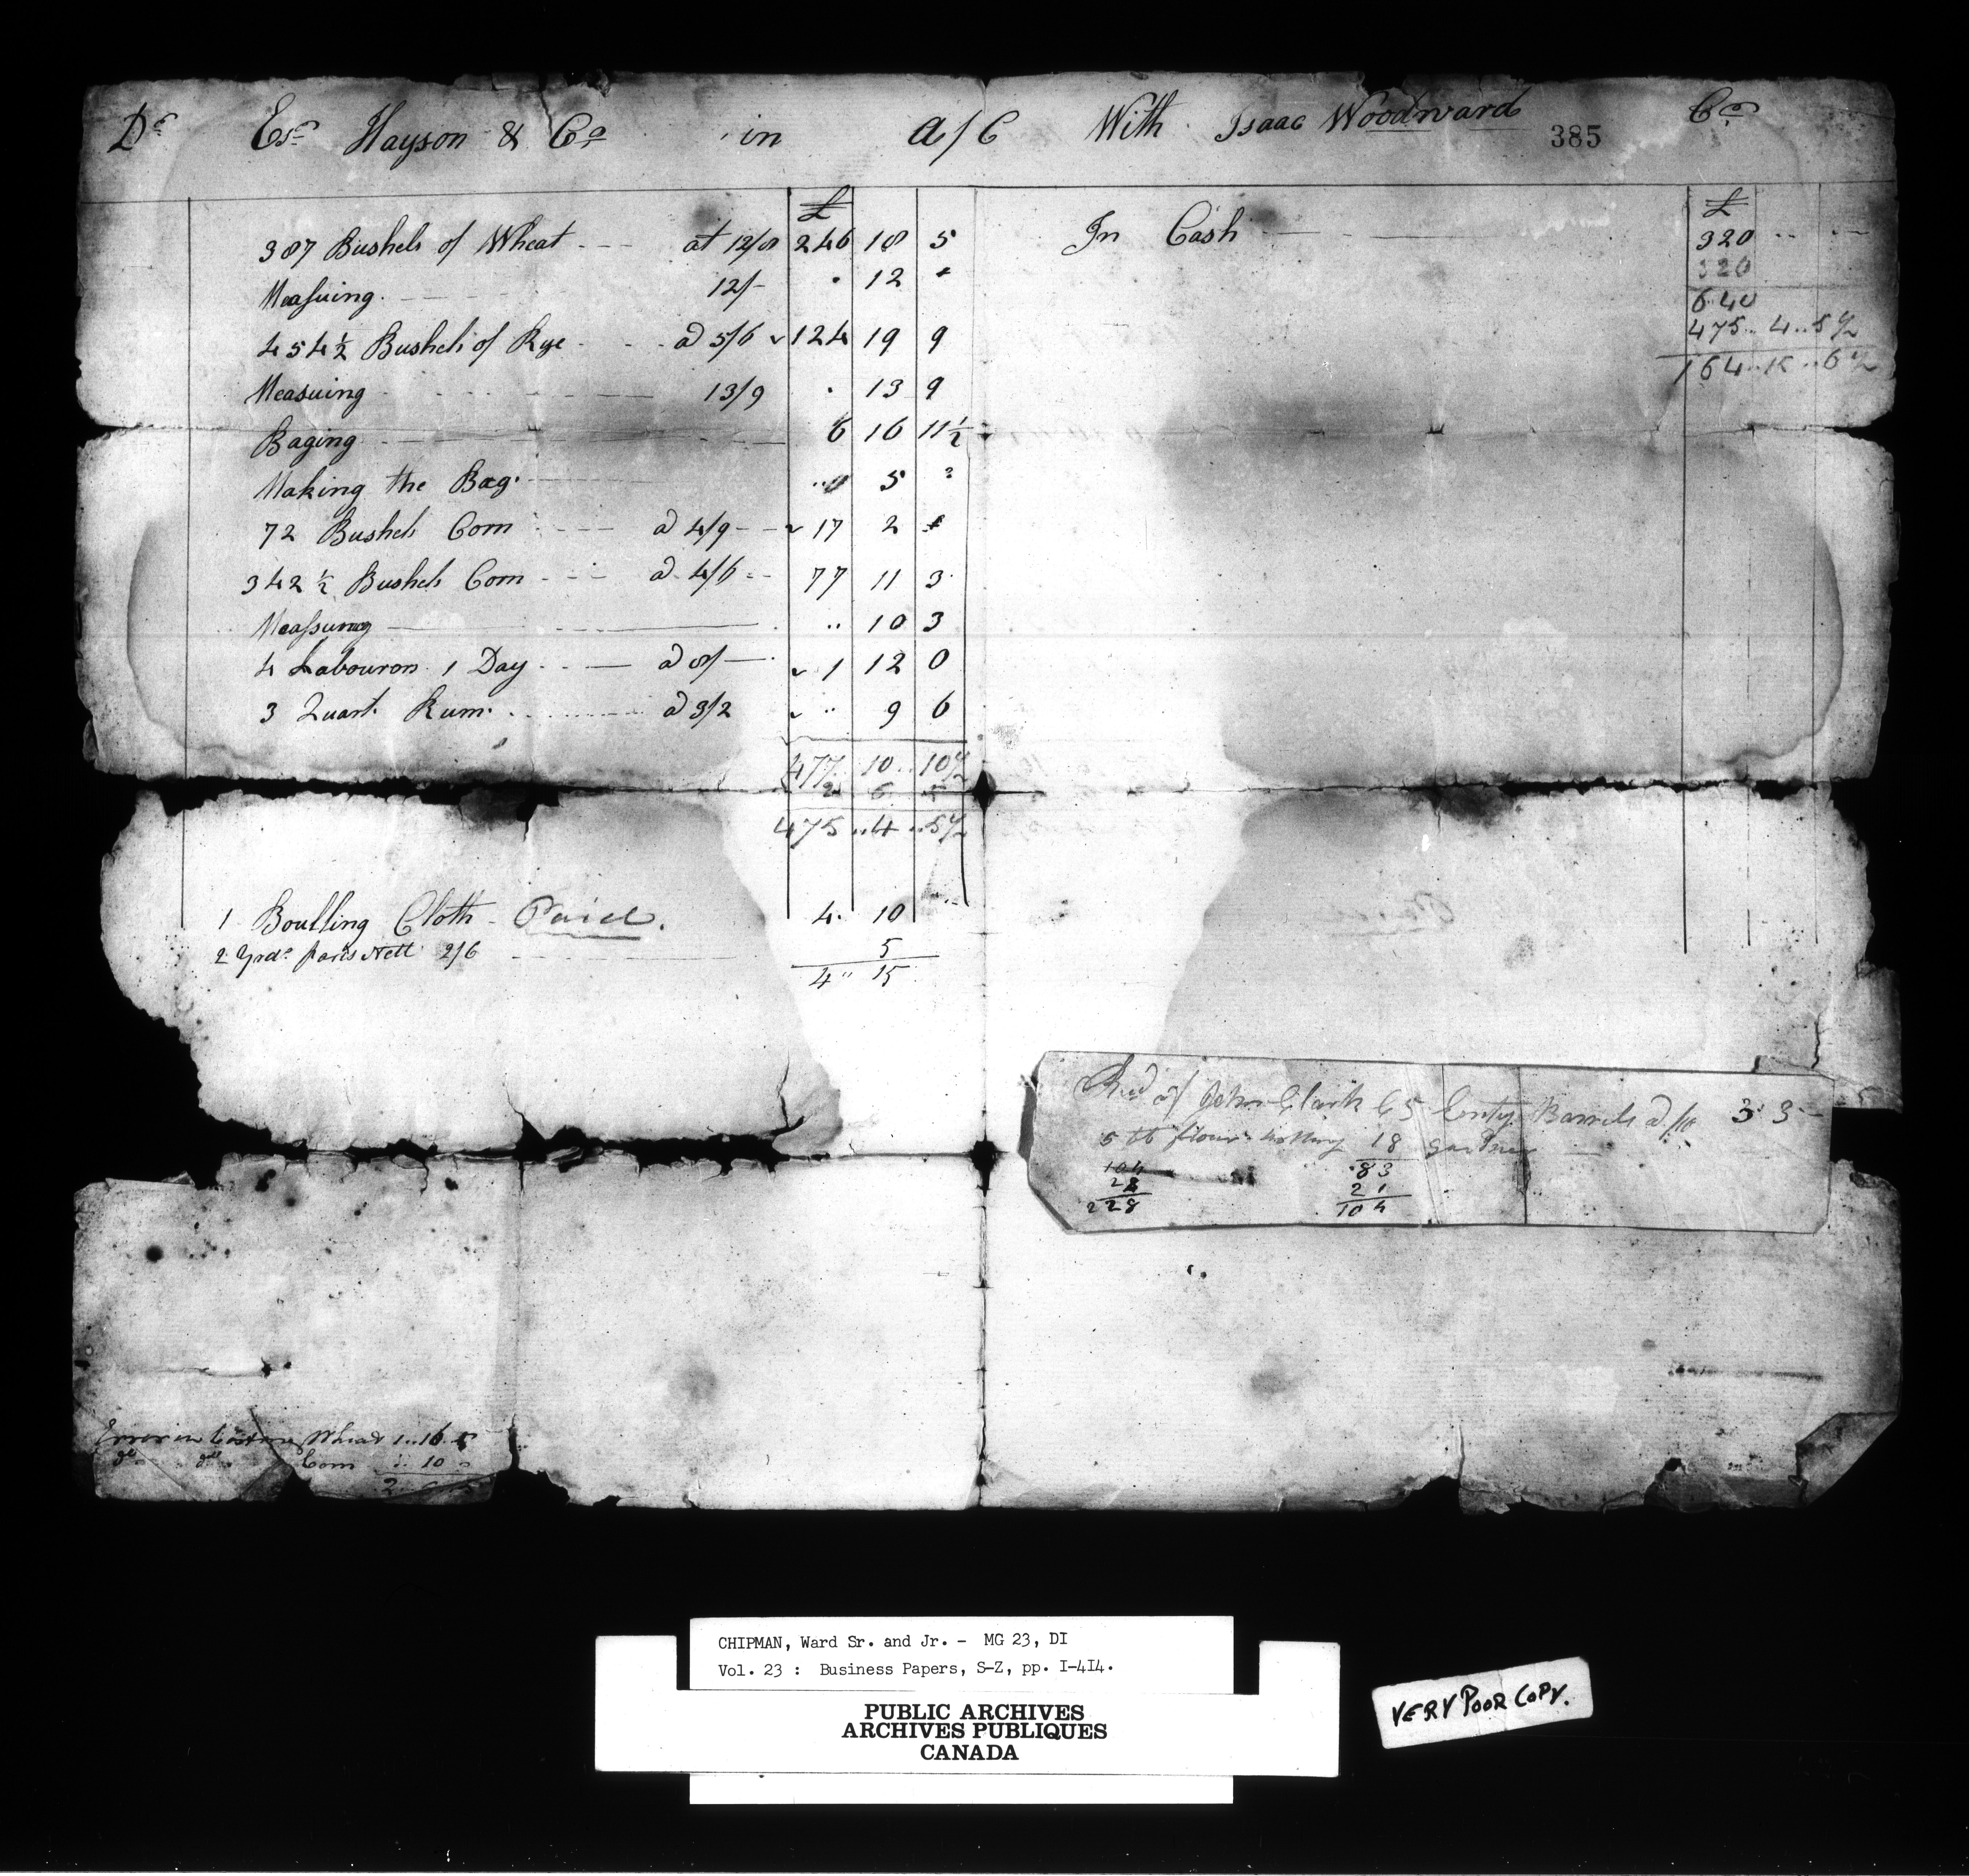 Dr Esn Hayson & Co in a/C With Isaac Woodward Cr
385
£
387 Bushels of Wheat at 12/8 246 18 5
Measuing 12/- 12
454½ Bushels of Rye a 5/6 124 19 9
Measuing 13/9 13 9
Baging 6 16 11½
Making the Bag 5
72 Bushels Corn a 4/9 17 2
342½ Bushels Corn a 4/6 77 11 3
Measuring 10 3
4 Labourors 1 Day a 8/ 1 12 0
3 Quart Rum a 3/2 9 6
477 10 10½
2 6 5
475 .. 4 .. 5½
1 Boulling Cloth Paid. 4 10
2 Yrds Nett 2/6 5
4 " 15
£
In Cash 320
320
640
475 .. 4 .. 5½
164 .. 15 .. 6½
Recd of John Clark 65 Emty Barrels a /10 3 3
flour 18
104 83
28 21
228 104
Error in Wheat 1 .. 16 .. 5
do do Corn 10
2
CHIPMAN, Ward Sr. and Jr. - MG 23, DI
Vol. 23 : Business Papers, S-Z, pp. I-4I4.
PUBLIC ARCHIVES
ARCHIVES PUBLIQUES
CANADA
VERY POOR COPY.